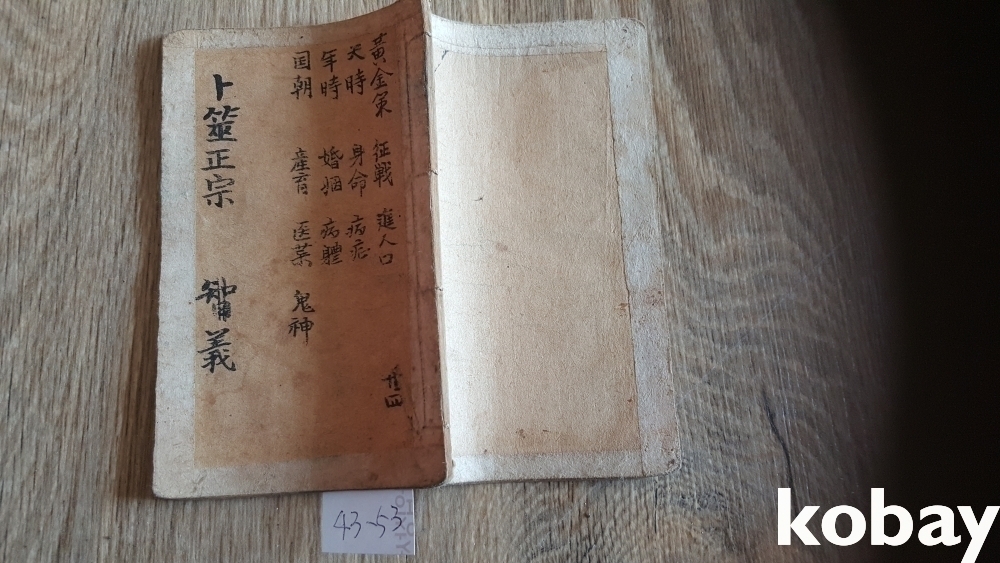 黃金策 征戦 進人口
天時 身命 病症
年時 婚姻 病體
国朝 産育 医薬 鬼神
卜筮正宗 智義
43-53
kobay